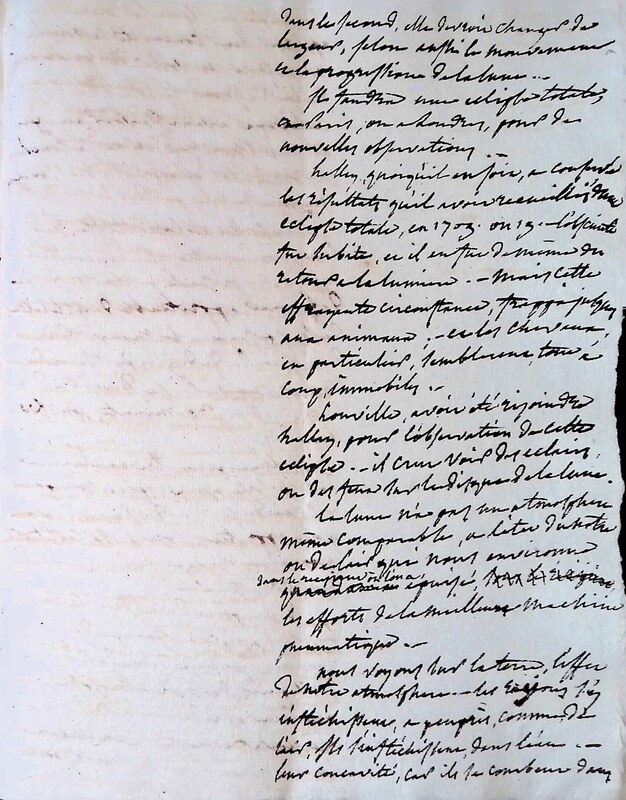 dans le second, elle devroit changer de
largeur, selon aussi le mouvement
et la progression de la lune. --
Il faudra une eclipse totale,
a Paris, ou a Londres, pour de
nouvelles observations. --
halley, quoiqu'il en soit, a conservé
les résultats qu'il avoit recueillis d'une
eclipse totale, en 1705. ou 15 - l'obscurité
fut subite, et il en fut de même du
retour a la lumiere. - Mais cette
effrayante circonstance, frappa jusques
aux animaux. - et les chevaux,
en particulier, semblerent, tout à
coup, immobiles. -
Louville, avoit été rejoindre
halley, pour l'observation de cette
eclipse. - il crut voir des eclairs,
ou des feux sur le disque de la lune.
la lune n'a pas un atmosphere
même comparable, a celui du notre
ou de l'air qui nous environne
dans le recipient où l'on a
epuisé,
les efforts de la meilleure machine
pneumatique. -
nous voyons sur la terre, l'effet
de notre atmosphere. - les rayons s'y
inflechissent, a peu près, comme de
l'air, ils s'inflechissent dans l'eau. -
leur concavité, car ils se courbent dans